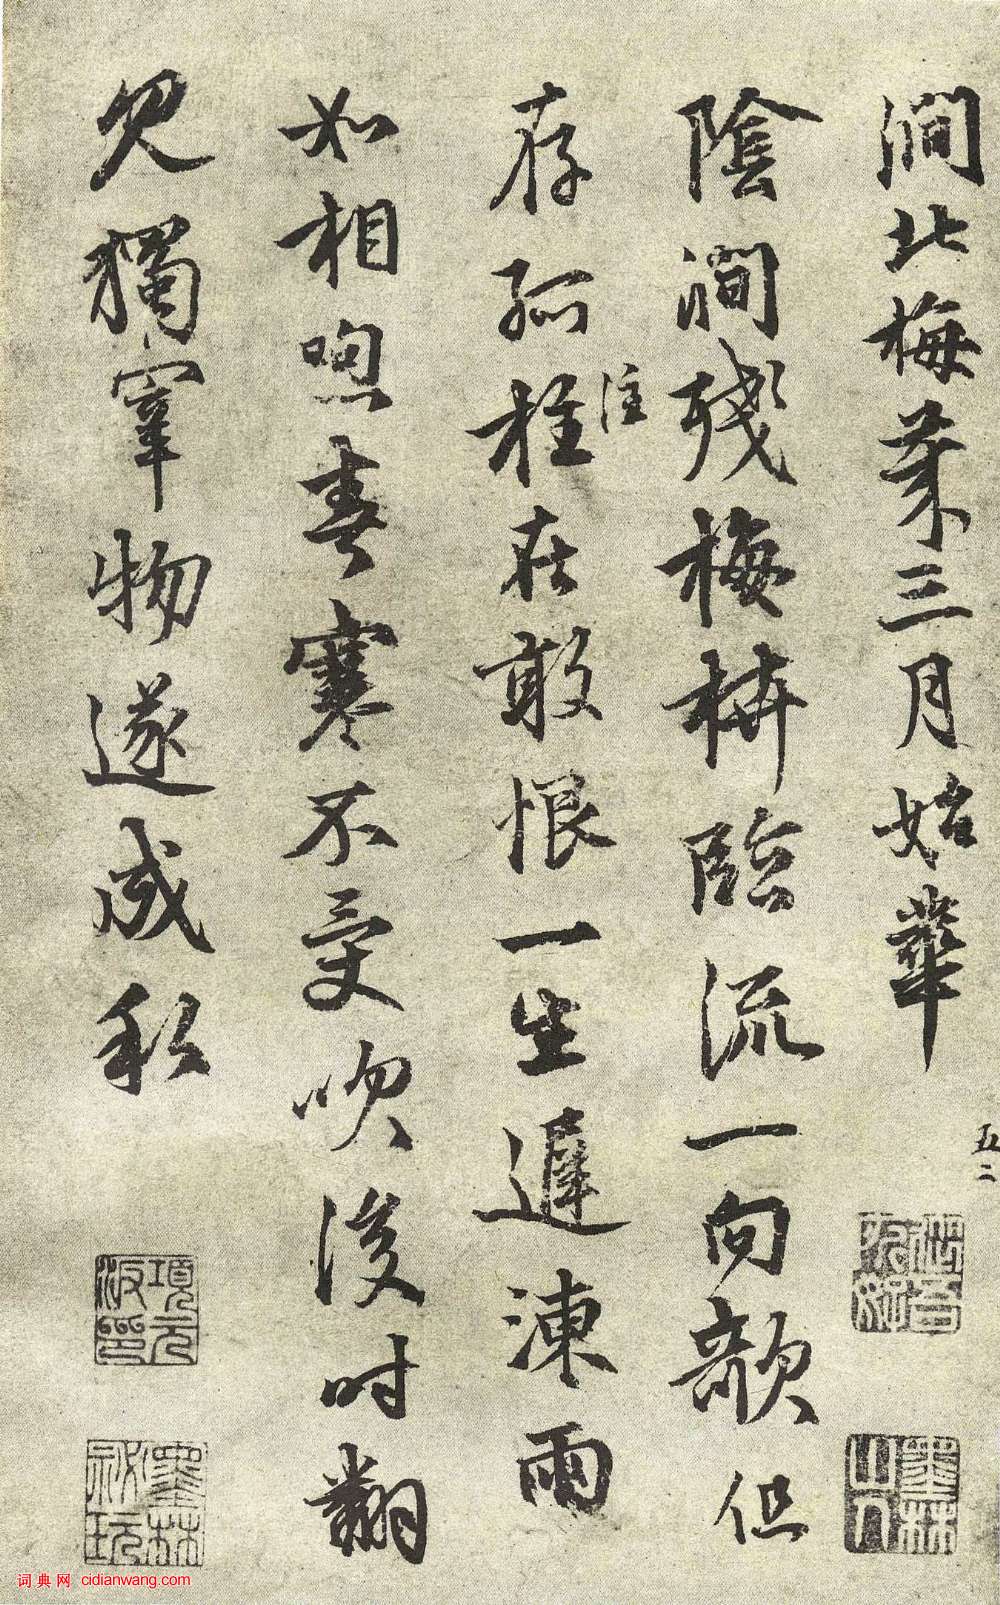 澗北梅三月始華
陰澗殘梅枿臨流一向欹但
存孤柱在敢恨一生遲凍雨
注
如相喣春寒不受吹後時翻
見獨宰物遂成私
五二
墨林山人
項元汴印
墨林秘玩
词典网 cidianwang.com